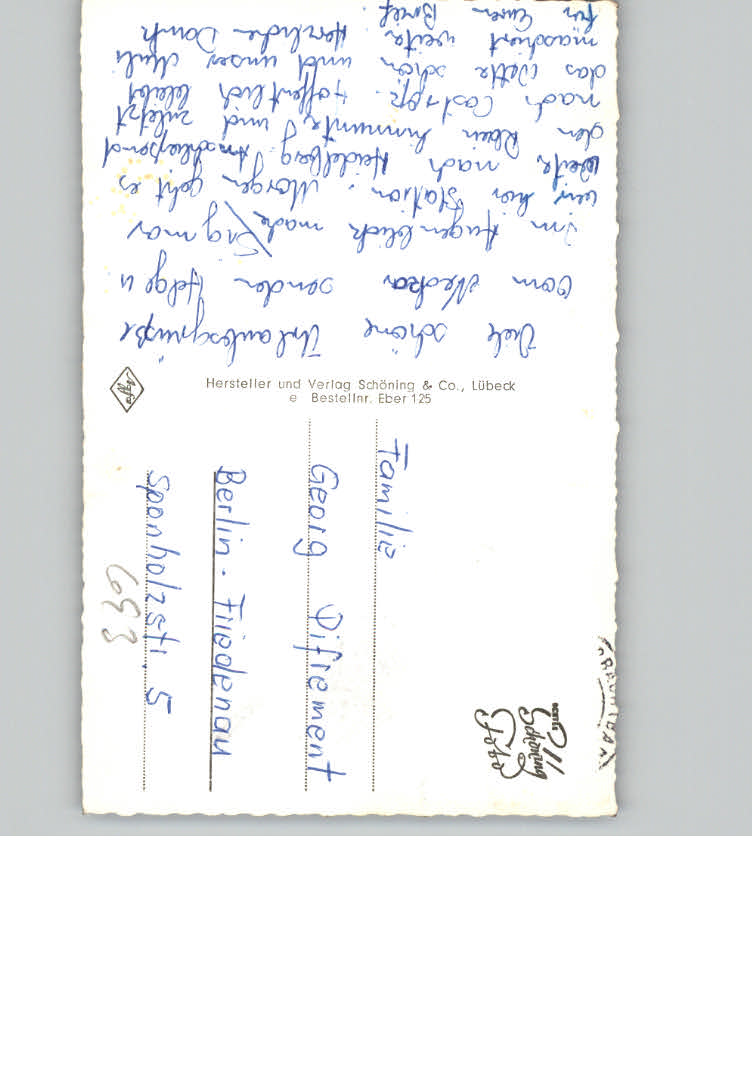 Viele schöne Urlaubsgrüße
vom Neckar senden Helge u
im Augenblick mache / Sigmar
wir hier Station. Morgen geht es
weiter nach Heidelberg. Anschließend
den Rhein hinunter und zuletzt
nach Hoffentlich bleibt
das Wetter schön und unser
marschiert weiter. Herzlichen Dank
für Euren Brief.
Agfa
Hersteller und Verlag Schöning & Co., Lübeck
e Bestellnr. Eber 125
Familie
Georg Difrement
Berlin-Friedenau
Sponholzstr. 5
693
Schöning
Foto